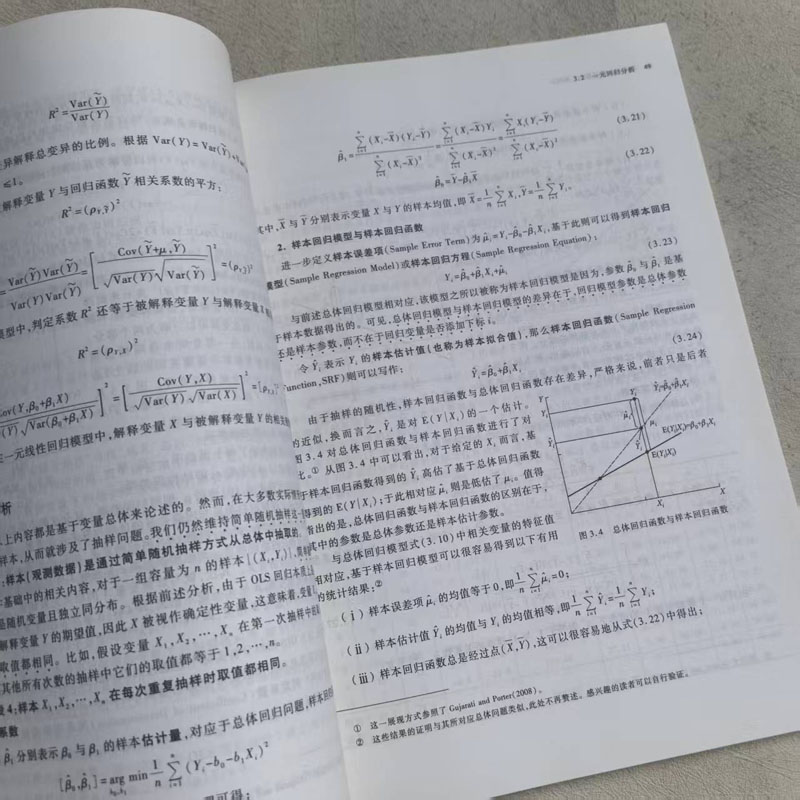 R² = Var(Ỹ)/Var(Y)
异解释总变异的比例。根据 Var(Y)=Var(Ỹ)+
≤1。
解释变量 Y 与回归函数 Ỹ 相关系数的平方：
Var(Ỹ)Var(Ỹ)/Var(Y)Var(Ỹ) = [Cov(Ỹ+μ,Ỹ)/√Var(Y)√Var(Ỹ)]²
模型中，判定系数 R² 还等于被解释变量 Y 与解释变量 X
Cov(Y,β₀+β₁X) √Var(β₀+β₁X) ]² = [Cov(Y,X)/√Var(Y)√Var(X)]²
一元线性回归模型中，解释变量 X 与被解释变量 Y 的相关
析
上内容都是基于变量总体来论述的。然而，在大多数实际
样本，从而就涉及了抽样问题。我们仍然维持简单随机抽样
样本(观测数据)是通过简单随机抽样方式从总体中抽取的。
基础中的相关内容，对于一组容量为 n 的样本{(Xᵢ,Yᵢ)}
是随机变量且独立同分布。根据前述分析，由于 OLS 回归本质上
解释变量 Y 的期望值，因此 X 被视作确定性变量，这意味着，变量
取值都相同。比如，假设变量 X₁，X₂，…，Xₙ 在第一次抽样中
其他所有次数的抽样中它们的取值都等于 1,2,…,n。
4：样本 X₁，X₂，…，Xₙ 在每次重复抽样时取值都相同。
系数
β̂₁ 分别表示 β₀ 与 β₁ 的样本估计量，对应于总体回归问题，样本回归
[β̂₀,β̂₁] = arg min_{b₀,b₁} 1/n Σⁿᵢ₌₁ (Yᵢ-b₀-b₁Xᵢ)²
可得：
3.2 一元回归分析 49
β̂₁ = Σⁿᵢ₌₁(Xᵢ-X̄)(Yᵢ-Ȳ)/Σⁿᵢ₌₁(Xᵢ-X̄)² = Σⁿᵢ₌₁(Xᵢ-X̄)Yᵢ/Σⁿᵢ₌₁(Xᵢ-X̄)² = Σⁿᵢ₌₁Xᵢ(Yᵢ-Ȳ)/Σⁿᵢ₌₁(Xᵢ-X̄)² (3.21)
β̂₀=Ȳ-β̂₁X̄ (3.22)
其中，X̄ 与 Ȳ 分别表示变量 X 与 Y 的样本均值，即 X̄=1/n Σⁿᵢ₌₁ Xᵢ，Ȳ=1/n Σⁿᵢ₌₁ Yᵢ。
2. 样本回归模型与样本回归函数
进一步定义样本误差项(Sample Error Term)为 μ̂ᵢ=Yᵢ-β̂₀-β̂₁Xᵢ，基于此则可以得到样本回归
模型(Sample Regression Model)或样本回归方程(Sample Regression Equation)：
Yᵢ=β̂₀+β̂₁Xᵢ+μ̂ᵢ (3.23)
与前述总体回归模型相对应，该模型之所以被称为样本回归模型是因为，参数 β̂₀ 与 β̂₁ 是基
于样本数据得出的。可见，总体回归模型与样本回归模型的差异在于，回归模型参数是总体参数
还是样本参数，而不在于回归变量是否添加下标 i。
令 Ŷᵢ 表示 Yᵢ 的样本估计值(也称为样本拟合值)，那么样本回归函数(Sample Regression
Function,SRF)则可以写作：
Ŷᵢ=β̂₀+β̂₁Xᵢ (3.24)
由于抽样的随机性，样本回归函数与总体回归函数存在差异，严格来说，前者只是后者
的近似，换而言之，Ŷᵢ 是对 E(Y|Xᵢ) 的一个估计。
图 3.4 对总体回归函数与样本回归函数进行了对
比。① 从图 3.4 中可以看出，对于给定的 Xᵢ 而言，基
于样本回归函数得到的 Ŷᵢ 高估了基于总体回归函数
得到的 E(Y|Xᵢ)；于此相对应 μ̂ᵢ 则是低估了 μᵢ。值得
指出的是，总体回归函数与样本回归函数的区别在于，
其中的参数是总体参数还是样本估计参数。
Y
Yᵢ
Ŷᵢ
Yᵢ
μ̂ᵢ
μᵢ
Ŷᵢ=β̂₀+β̂₁Xᵢ
E(Y|Xᵢ)=β₀+β₁Xᵢ
E(Y|Xᵢ)
Xᵢ
X
图 3.4 总体回归函数与样本回归函数
与总体回归模型式(3.10)中相关变量的特征值
相对应，基于样本回归模型可以很容易得到以下有用
的统计结果：②
(ⅰ) 样本误差项 μ̂ᵢ 的均值等于 0，即 1/n Σⁿᵢ₌₁ μ̂ᵢ=0；
(ⅱ) 样本估计值 Ŷᵢ 的均值与 Yᵢ 的均值相等，即 1/n Σⁿᵢ₌₁ Ŷᵢ=1/n Σⁿᵢ₌₁ Yᵢ；
(ⅲ) 样本回归函数总是经过点(X̄,Ȳ)，这可以很容易地从式(3.22)中得出；
① 这一展现方式参照了 Gujarati and Porter(2008)。
② 这些结果的证明与其所对应总体问题类似，此处不再赘述。感兴趣的读者可以自行验证。